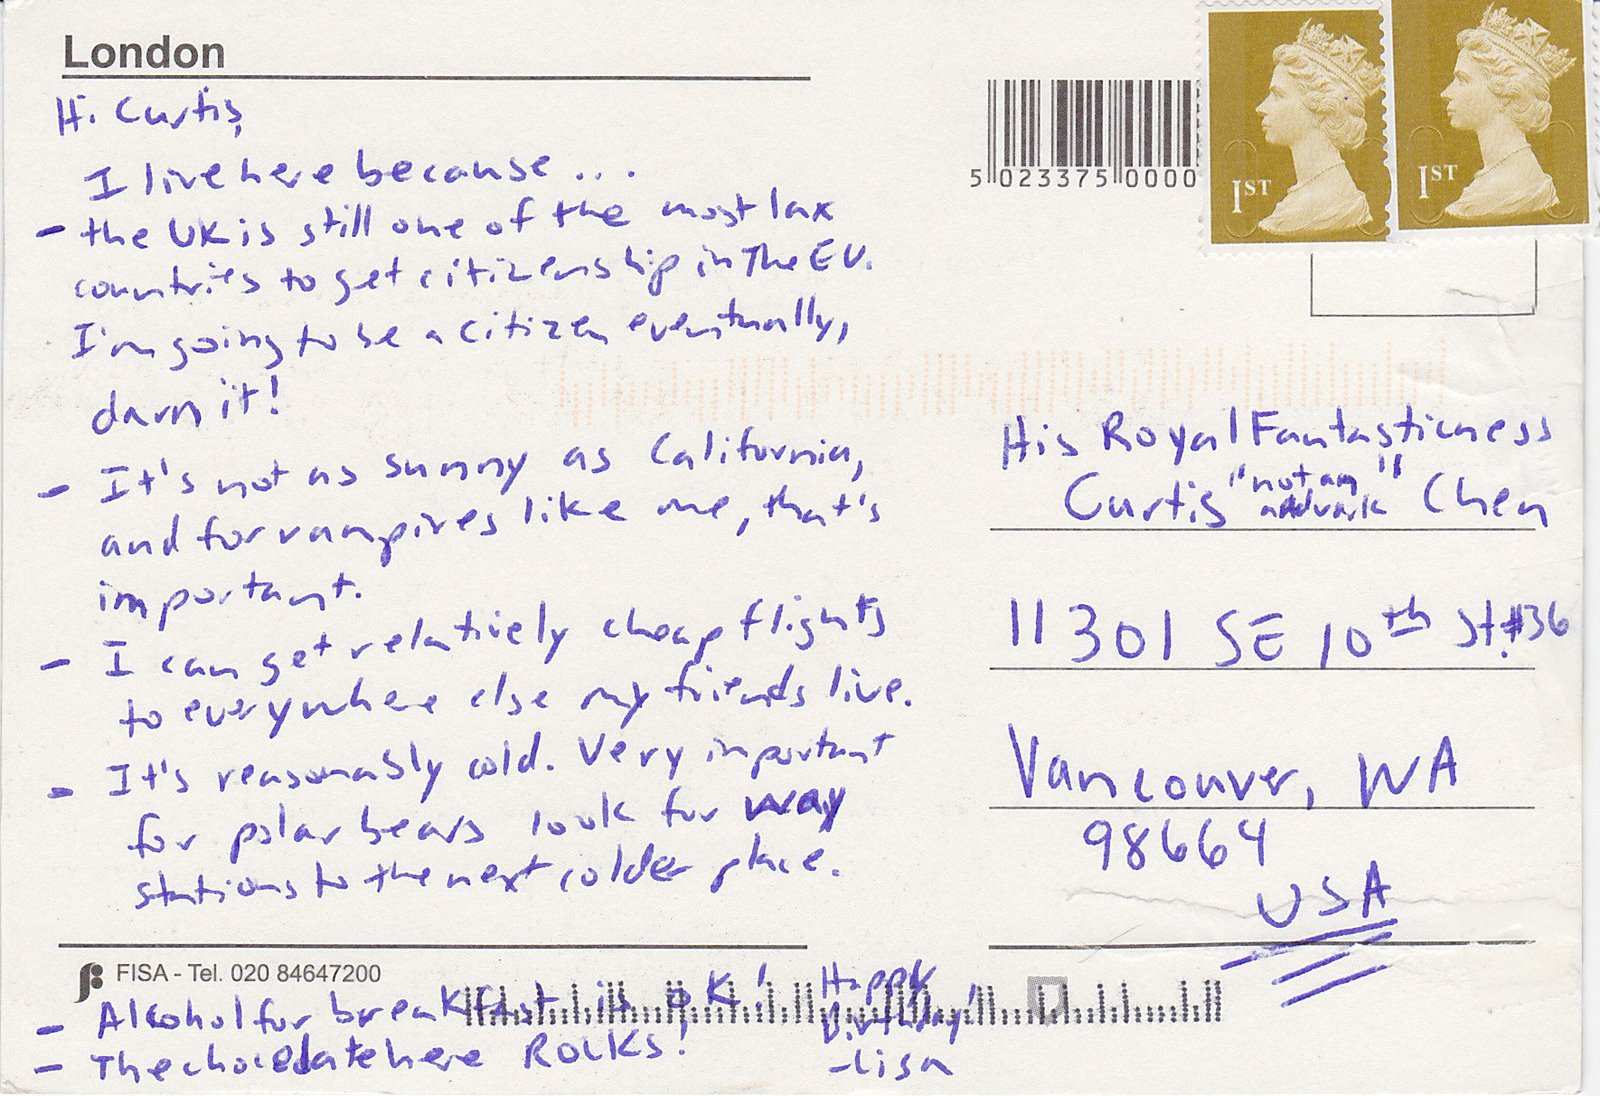 London
Hi Curtis,
I live here because ...
- the UK is still one of the most lax
countries to get citizenship in The EU.
I'm going to be a citizen eventually,
darn it!
- It's not as sunny as California,
and for vampires like me, that's
important.
- I can get relatively cheap flights
to everywhere else my friends live.
- It's reasonably cold. Very important
for polar bears look for way
stations to the next colder place.
FISA - Tel. 020 84647200
- Alcohol for breakfast is OK!
- The chocolate here ROCKS!
Happy
Birthday!
-Lisa
5 023375 0000
1ST
1ST
His Royal Fantasticness
Curtis "not an
advark" Chen
11301 SE 10th St. #36
Vancouver, WA
98664
USA